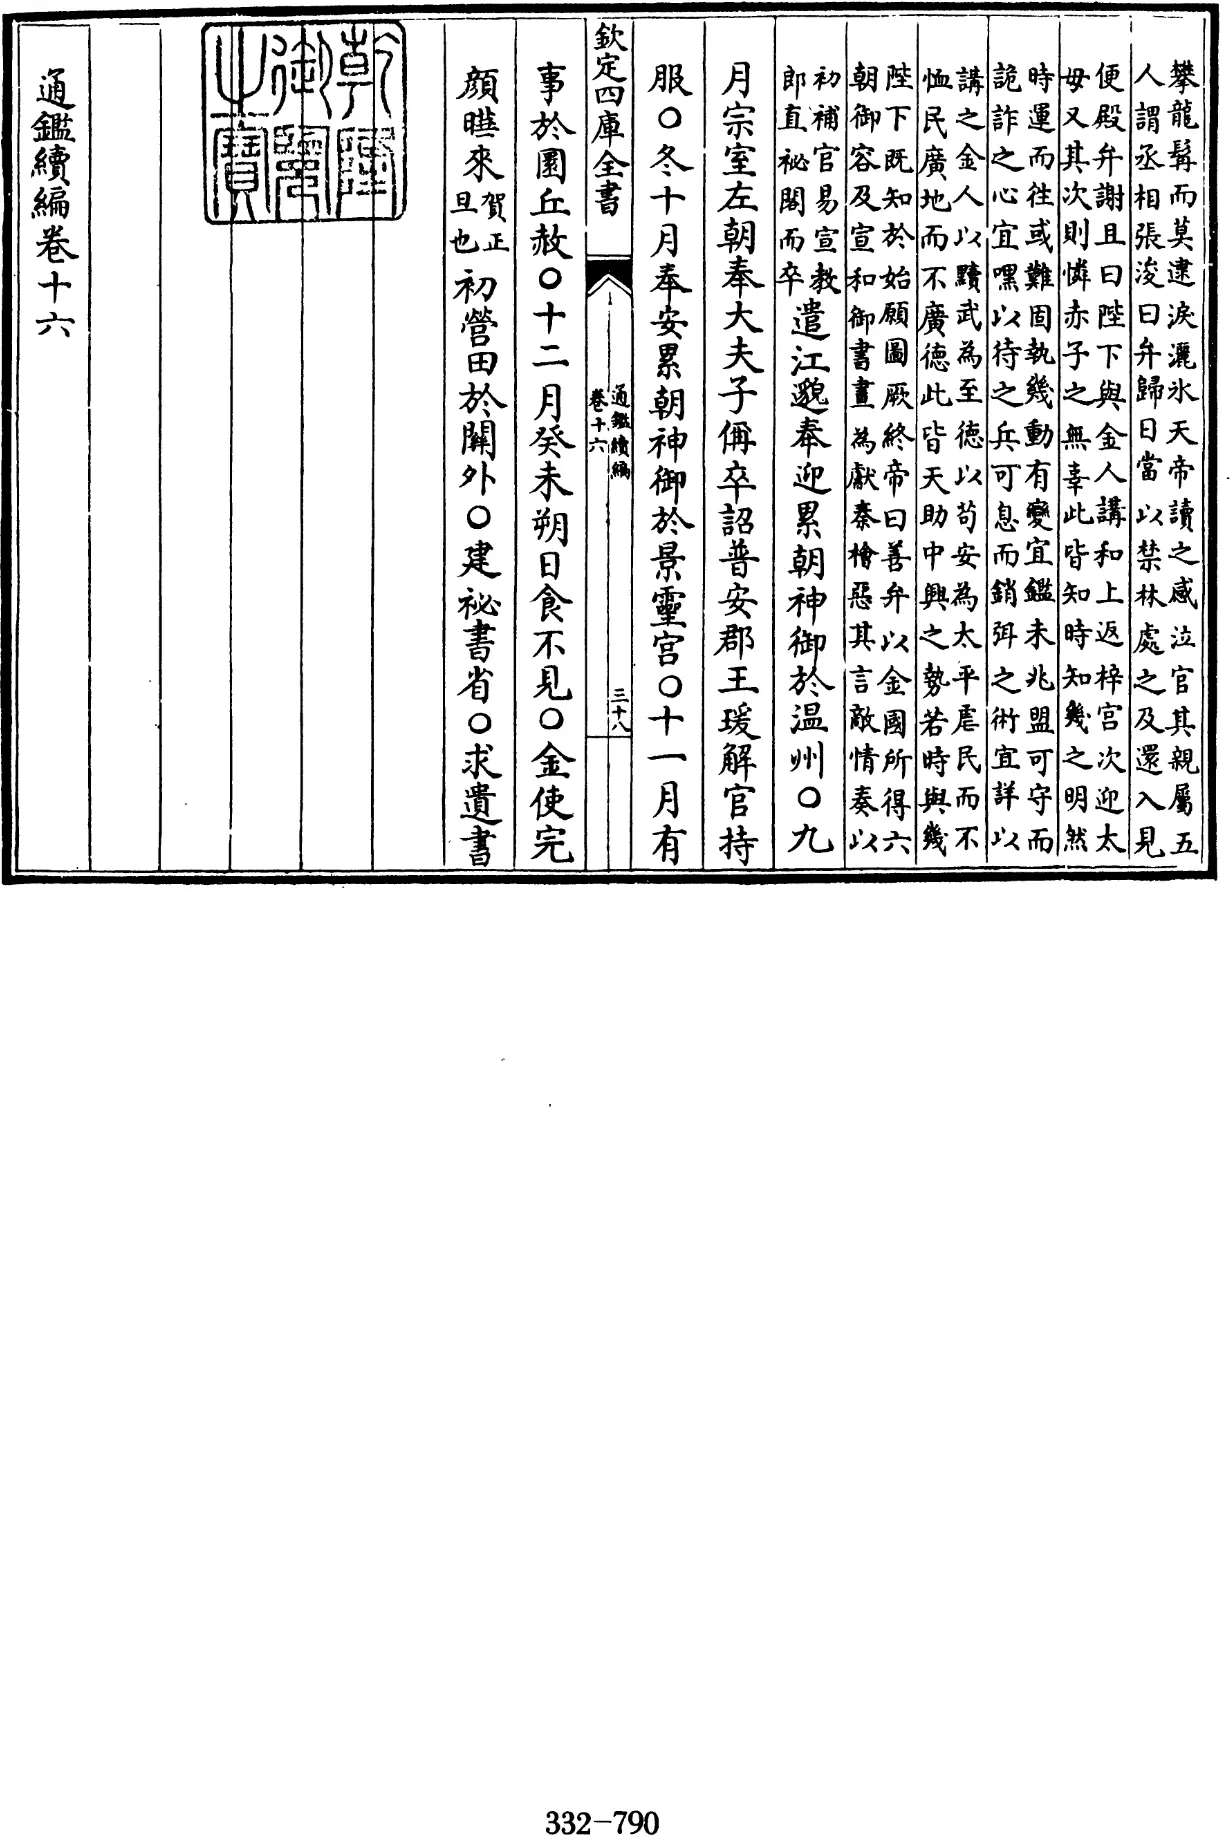 攀龍髯而莫逮淚灑氷天帝讀之感泣官其親屬五
人謂丞相張浚曰弁歸日當以禁林處之及還入見
便殿弁謝且曰陛下與金人講和上返梓宮次迎太
母又其次則憐赤子之無辜此皆知時知幾之明然
時運而徃或難固執幾動有變宜鑑未兆盟可守而
詭詐之心宜嘿以待之兵可息而銷弭之術宜詳以
講之金人以黷武為至徳以苟安為太平虐民而不
恤民廣地而不廣徳此皆天助中興之勢若時與幾
陛下既知於始願圖厥終帝曰善弁以金國所得六
朝御容及宣和御書畫為獻秦檜惡其言敵情奏以
初補官易宣教
郎直祕閣而卒
遣江邈奉迎累朝神御於温州〇九
月宗室左朝奉大夫子偁卒詔普安郡王瑗解官持
服〇冬十月奉安累朝神御於景靈宮〇十一月有
欽定四庫全書
通鑑續編
卷十六
三十八
事於圜丘赦〇十二月癸未朔日食不見〇金使完
顔㬢來
賀正
旦也
初營田於關外〇建祕書省〇求遺書
乾隆御覽之寶
通鑑續編卷十六
332-790